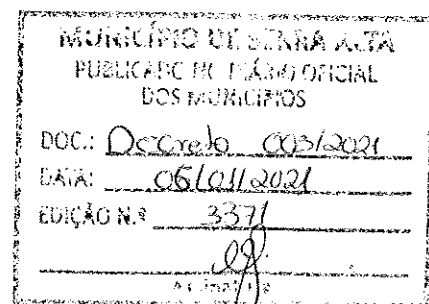 MUNICÍPIO DE SERRA ALTA
PUBLICADO NO DIÁRIO OFICIAL
DOS MUNICÍPIOS
DOC.: Decreto 003/2021
DATA: 06/01/2021
EDIÇÃO N.º 3371
Assinatura